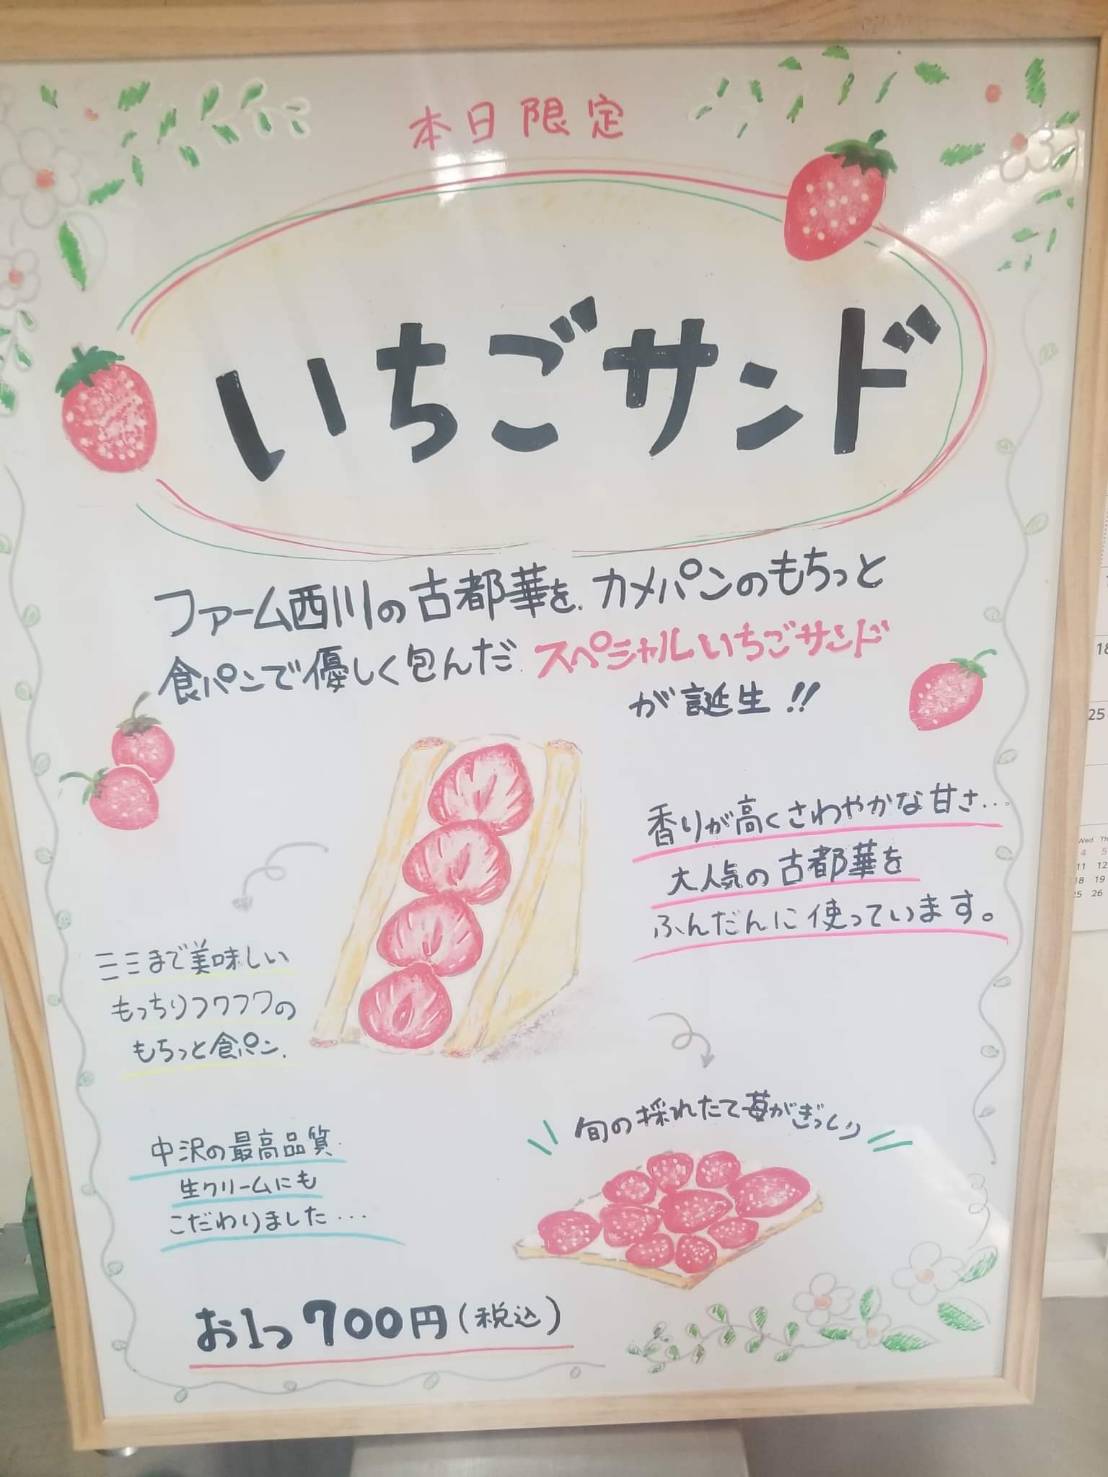 本日限定
いちごサンド
ファーム西川の古都華を、カメパンのもちっと
食パンで優しく包んだ、スペシャルいちごサンド
が誕生!!
香りが高くさわやかな甘さ...
大人気の古都華を
ふんだんに使っています。
ミミまで美味しい
もっちりフワフワの
もちっと食パン、
旬の採れたて苺がぎっしり
中沢の最高品質
生クリームにも
こだわりました...
お1つ700円(税込)
18
25
Wed
4 5
11 12
18 19
25 26